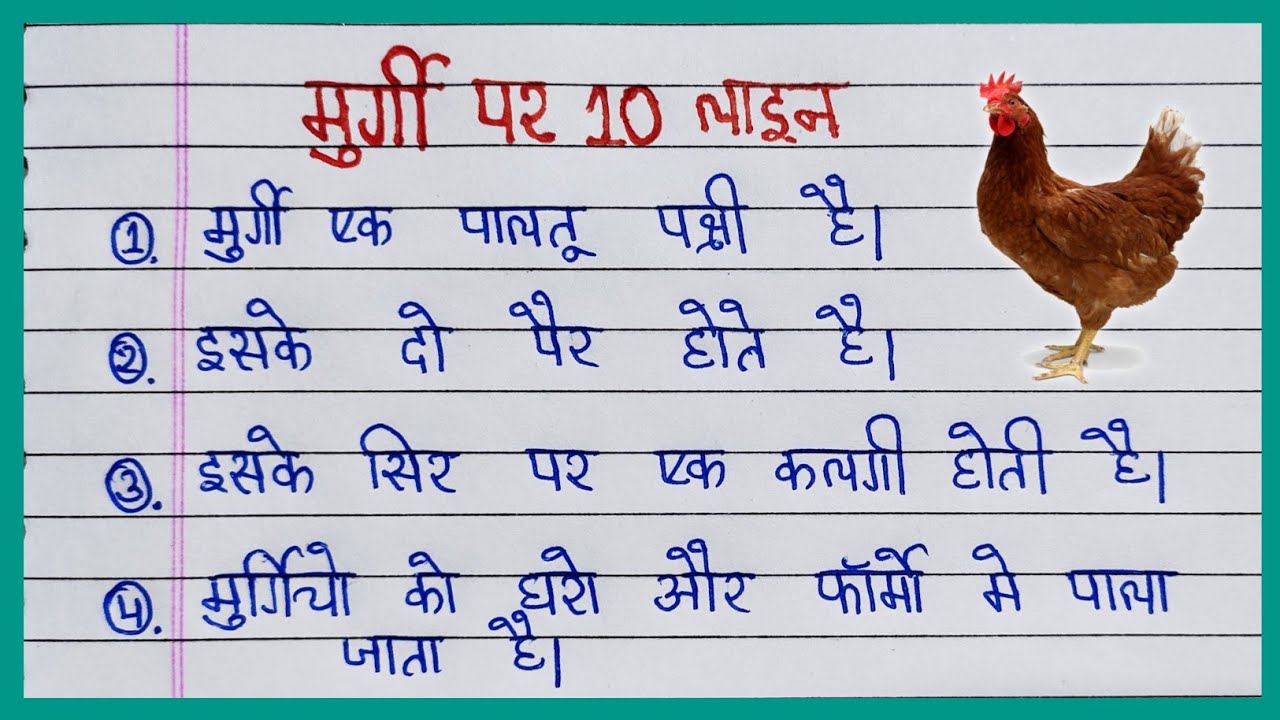 मुर्गी पर 10 लाइन
1. मुर्गी एक पालतू पक्षी है।
2. इसके दो पैर होते है।
3. इसके सिर पर एक कलगी होती है।
4. मुर्गियो को घरो और फॉर्मो मे पाला
जाता है।